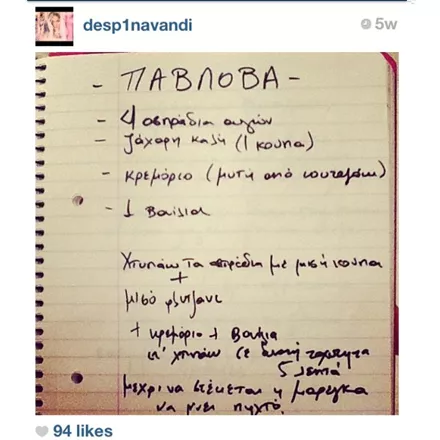 desp1navandi
5w
- ΠΑΒΛΟΒΑ -
- 4 ασπράδια αυγών
- ζάχαρη καλή (1 κούπα)
- κρεμόριο (μυτη από κουταλάκι)
- 1 βανίλια
Χτυπάω τα ασπράδια με μισή κούπα
+
μισό φλυτζάνι
+ κρεμόριο + βανίλια
κι' χτυπάω σε δυνατή ταχύτητα
5 λεπτά
μέχρι να στέκεται η μαρέγκα
να γίνει πηχτό.
94 likes